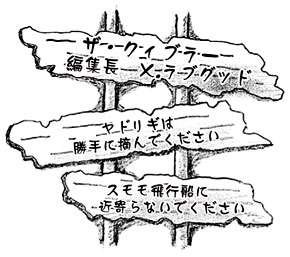 ザ・クィブラー
編集長 X.ラブグッド
ヤドリギは
勝手に摘んでください
スモモ飛行船に
近寄らないでください